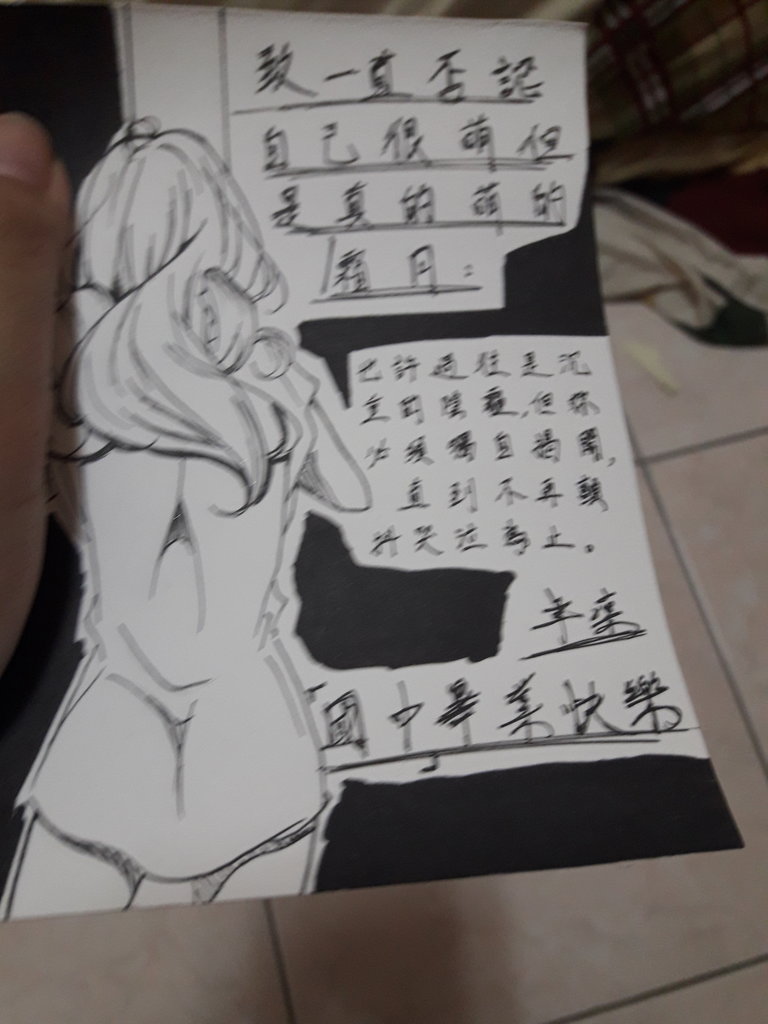 致一直否認
自己很萌但
是真的萌的
霜月：
也許過往是沉
重的陰霾，但你
必須獨自揭開，
直到不再顫
抖哭泣為止。
國中畢業快樂